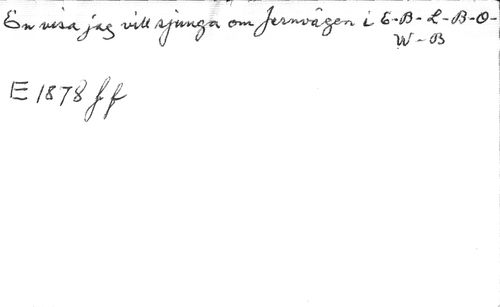 En visa jag vill sjunga om Jernvägen i E-B-L-B-O-
W-B
E 1878 ff